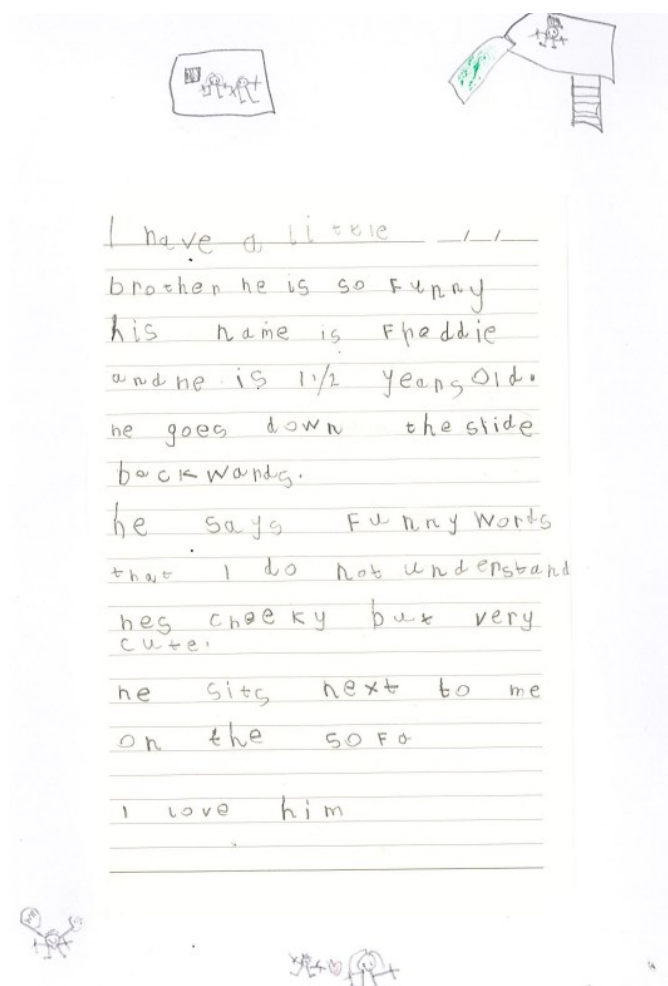 I have a little
brother he is so Funny
his name is Freddie
and he is 1 1/2 years old.
he goes down the slide
backwards.
he says Funny words
that I do not understand
hes cheeky but very
cute.
he sits next to me
on the sofa
I love him